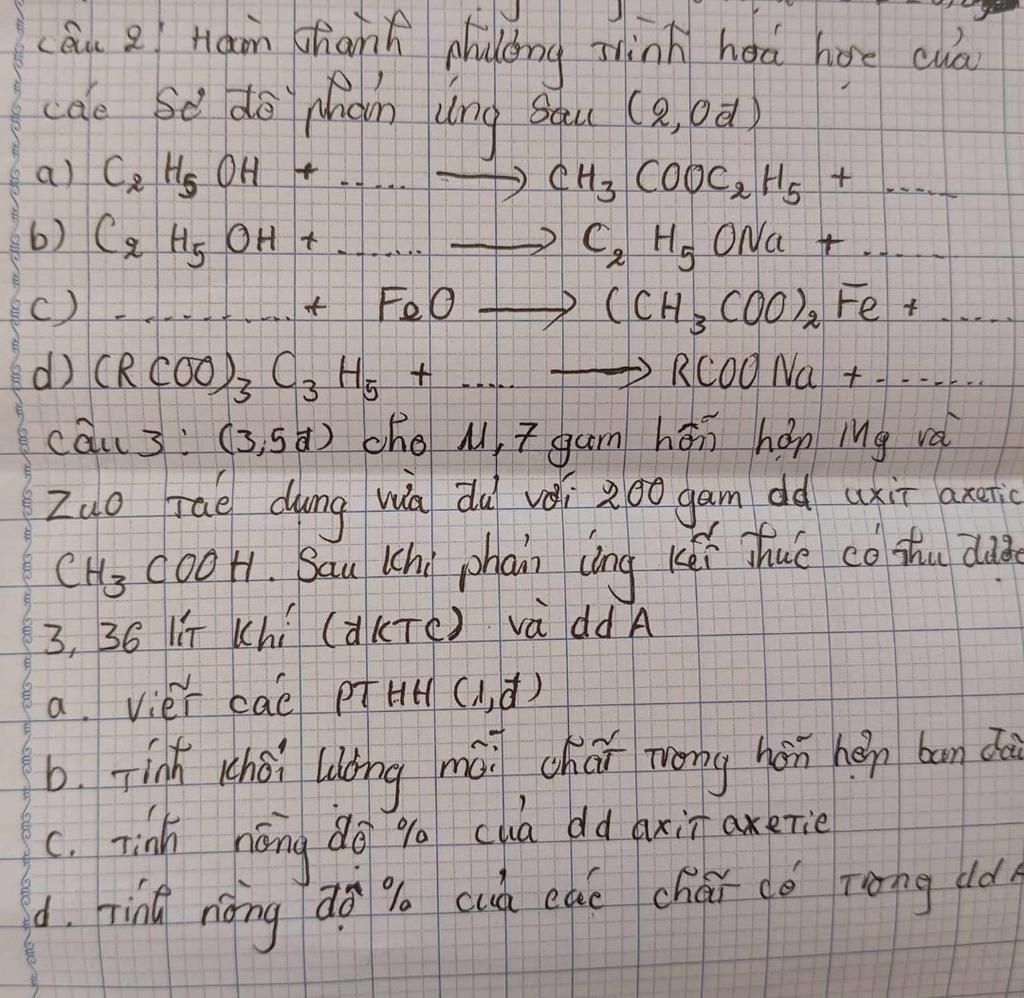 câu 2: Hoàn thành phương trình hoá học của
các sơ đồ phản ứng sau (2,0đ)
a) C₂H₅OH + ...... ⟶ CH₃COOC₂H₅ + ......
b) C₂H₅OH + ........ ⟶ C₂H₅ONa + ......
c) ............. + FeO ⟶ (CH₃COO)₂Fe + ......
d) (RCOO)₃C₃H₅ + ...... ⟶ RCOONa + ........
câu 3: (3,5đ) cho 11,7 gam hỗn hợp Mg và
ZnO Tác dụng vừa đủ với 200 gam dd axit axetic
CH₃COOH. Sau khi phản ứng kết thúc có thu được
3,36 lít khí (đKTC) và ddA
a. viết các PTHH (1,đ)
b. Tính khối lượng mỗi chất trong hỗn hợp ban đầu
c. Tính nồng độ % của dd axit axetic
d. Tính nồng độ % của các chất có trong ddA